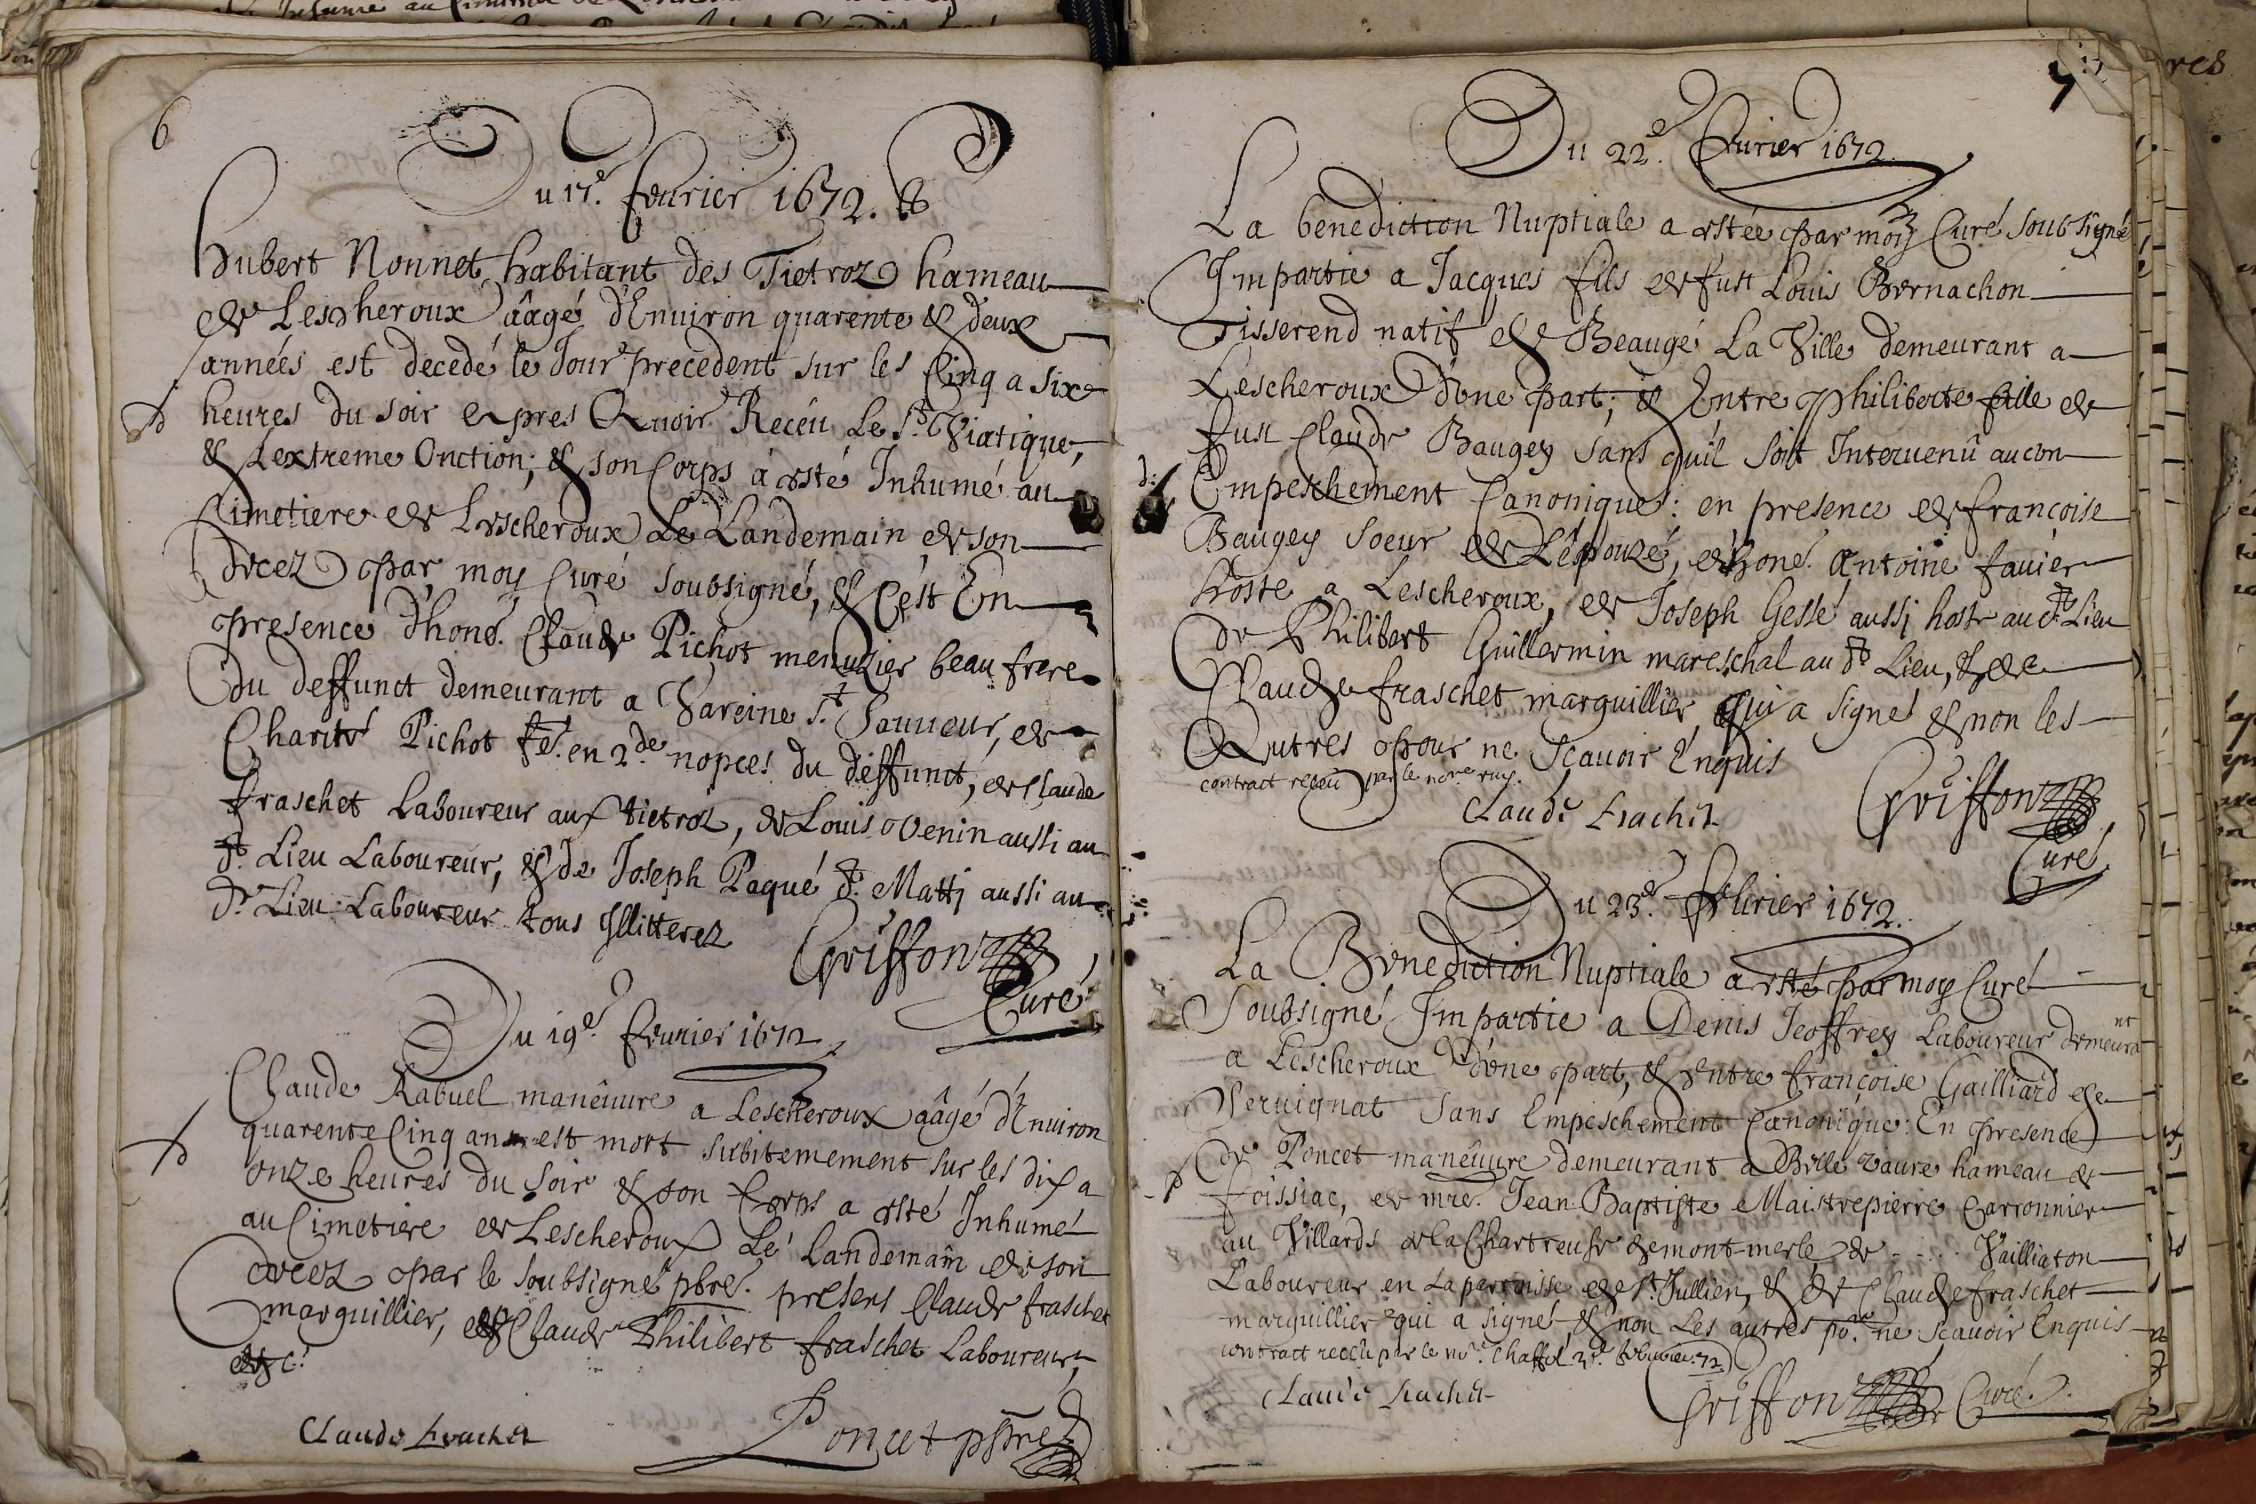 6
Du 17e. feburier 1672.
hubert Nonnet habitant des Tietroz hameau
de Lescheroux aâgé d'Enuiron quarente & deux
années est decedé le Jour precedent sur les Cinq a six
heures du soir apres Auoir Recëu Le St. Viatique,
& Lextreme Onction; & son Corps à esté Inhumé au
Cimetiere de Lescheroux Le Landemain de son
decez par moy Curé soubsigné, & c'est En
presence d'honé. Claude Pichot menuzier beau frere
du deffunct demeurant a Vareine St. Sauueur, de
Charité Pichot fe. en 2de nopces du deffunct, de Claude
fraschet Laboureur aux tietroz, de Louis Venin aussi au
dt. Lieu Laboureur, & de Joseph Paqué dt. Matti aussi au
dt. Lieu Laboureur tous Illitterez
Griffon
Curé
Du 19e. feburier 1672
Claude Rabuel manêuure a Lescheroux aâgé d'Enuiron
quarente Cinq ans est mort subitemement sur les dix a
onze heures du soir & son Corps a esté Inhumé
au Cimetiere de Lescheroux Le landemain de son
decez par le soubsigné pbre. presens Claude fraschet
marguillier, & Claude Philibert fraschet Laboureur,
&c.
Claude frachet
Poncet pbre
7
Du 22e. feburier 1672
La benediction Nuptiale a estée par moy Curé soubsigné
Impartie a Jacques fils de fust Louis Bernachon
Tisserend natif de Beaugé La Ville demeurant a
Lescheroux d'une part; & Entre Philiberte fille de
fust Claude Baugey sans quil soit Interuenû aucun
Empeschement Canonique: en presence de françoise
Baugey soeur de L'épouzé, d'honé. Antoine fauier
hoste a Lescheroux, de Joseph Gesse aussi hoste au dt. Lieu
de Philibert Guillermin mareschal au dt Lieu, & de
Claude fraschet marguillier qui a signé & non les
Autres pour ne scauoir Enquis
contract receu par le nore ruy.
Claude frachet
Griffon
Curé
Du 23e. feburier 1672.
La Benediction Nuptiale a esté par moy Curé
Soubsigné Impartie a Denis Jeoffrey Laboureur demeurant
a Lescheroux d'une part, & Entre françoise Gailliard de
Veruignat sans Empeschement Canonique: En presence
de Poncet manêuure demeurant a Belle vaure hameau de
foissiac, de mre. Jean Baptiste Maistrepierre Carronnier
au Villards de la Chartreuse de mont-merle de .... Vailliaton
Laboureur en la parroisse de St. Jullien, & de Claude fraschet
marguillier qui a signé, & non Les autres po.r ne scauoir Enquis
contract receu par le nore. Chaffel
Claude frachet
Griffon Curé.